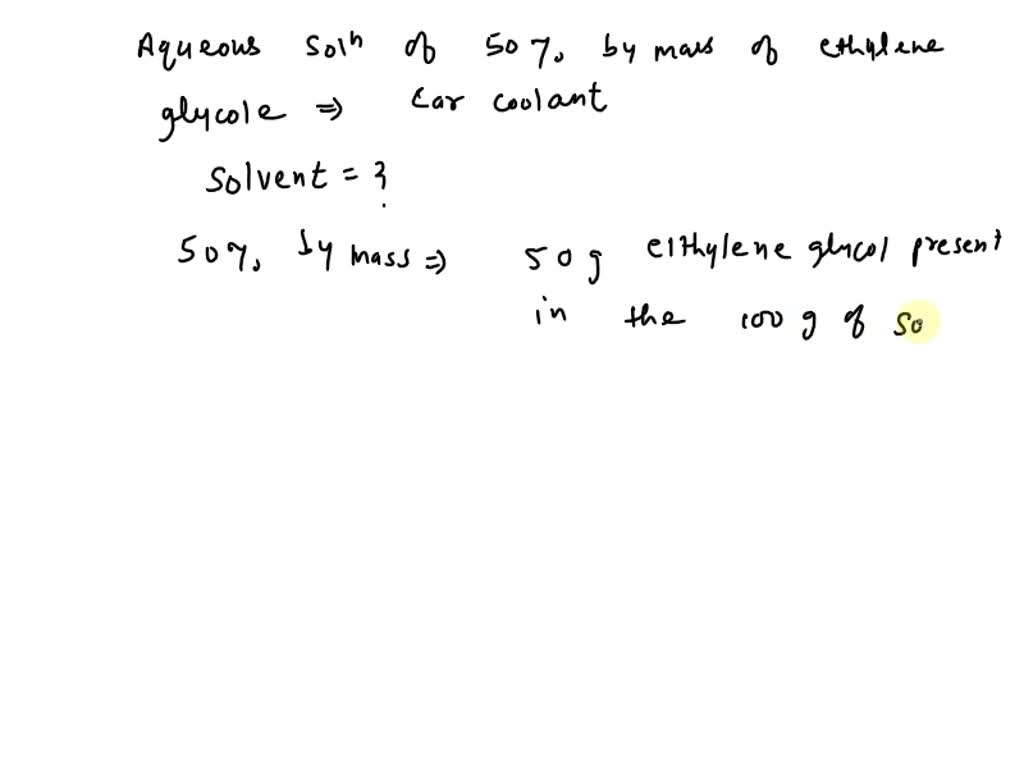 Aqueous solⁿ of 50%, by mass of ethylene
glycole ⇒ Car coolant
Solvent = ?
50%, by mass ⇒ 50 g elthylene glycol present
in the 100 g of so